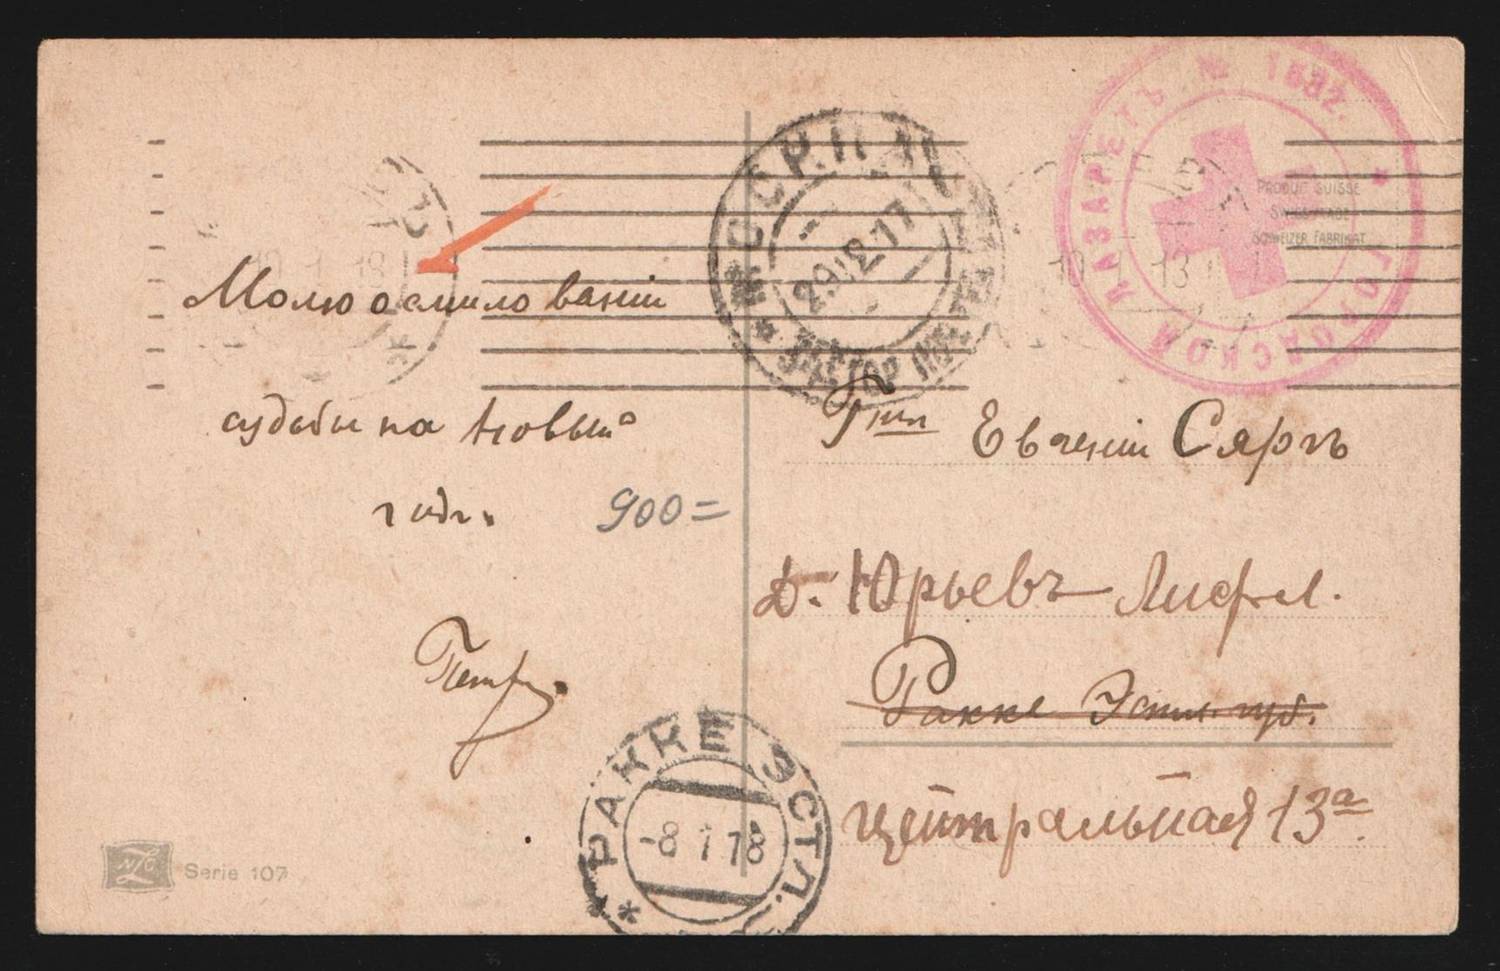 ГОРОДСКОЙ ЛАЗАРЕТЪ № 1632.
PRODUIT SUISSE
SWISS MADE
SCHWEIZER FABRIKAT
МОСКВА
29 12 17
10 1 18
10 1 18
Молю о смиловании
судьбы на новый
годъ.
900=
Петръ
Евгении Сяргъ
Юрьевъ Лифл.
Ракке Эстл. губ.
Центральная 13а
РАККЕ ЭСТЛ.
-8 1 18
NZG
Serie 107